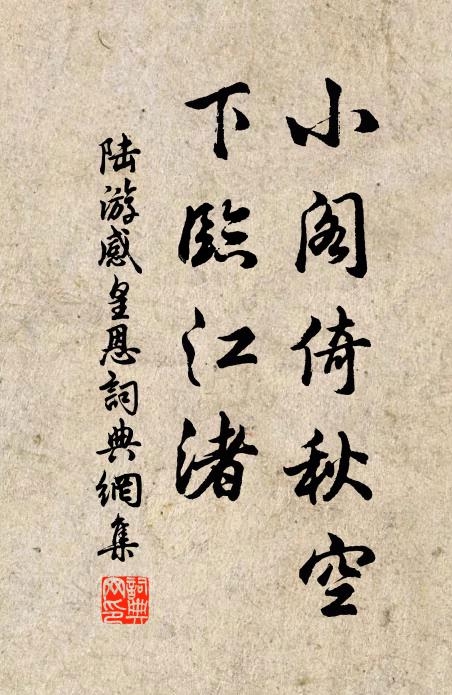 小阁倚秋空
下臨江渚
陆游感皇恩詞典網集
詞典网印